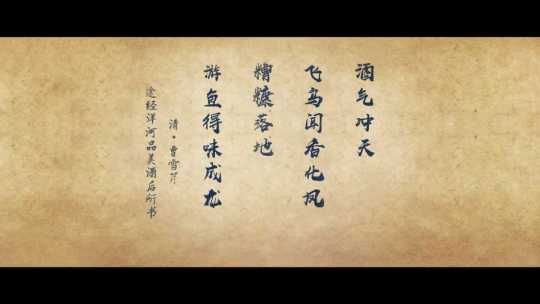 酒气冲天
飞鸟闻香化凤
糟糠落地
游鱼得味成龙
清·曹雪芹
途经洋河品美酒后所书